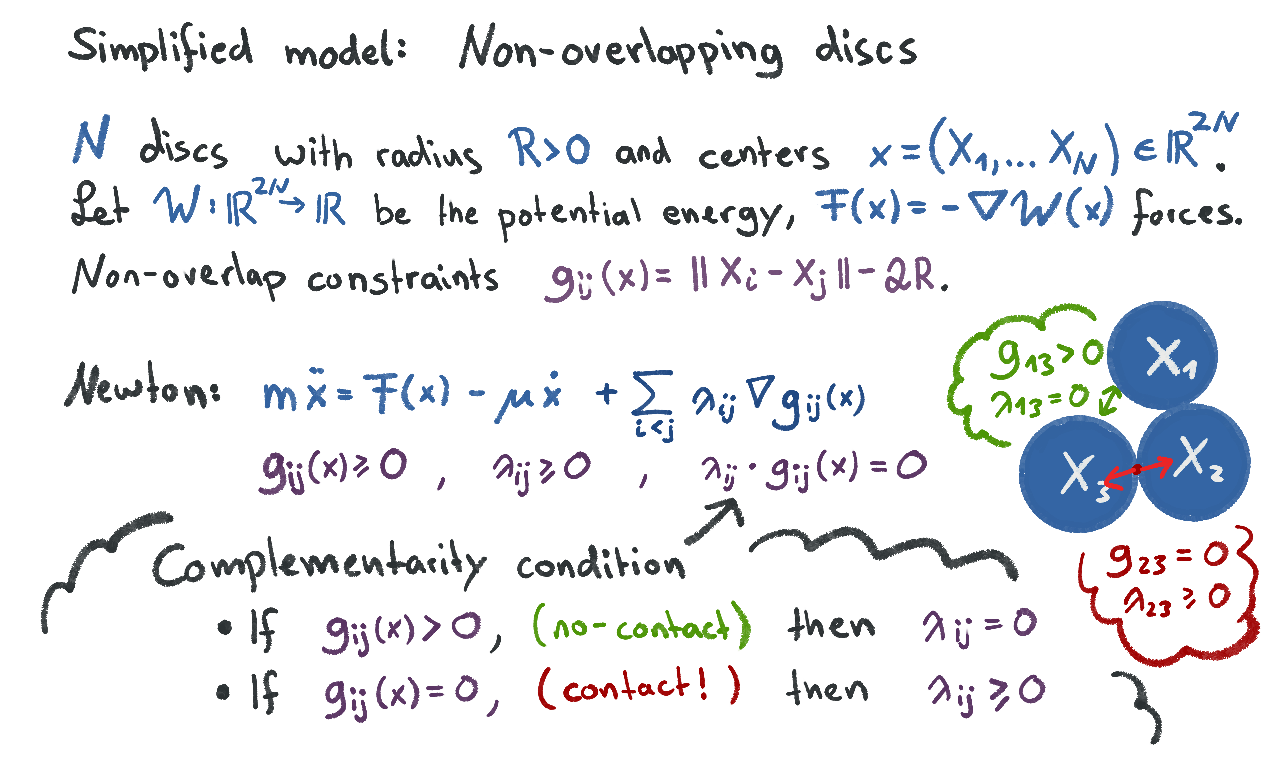 Simplified model: Non-overlapping discs
N discs with radius R>0 and centers x = (X₁,... X_N) ∈ ℝ²ᴺ.
Let W : ℝ²ᴺ → ℝ be the potential energy, F(x) = - ∇W(x) forces.
Non-overlap constraints g_ij(x) = ‖X_i - X_j‖ - 2R.
Newton: mẍ = F(x) - μẋ + ∑_{i<j} λ_ij ∇g_ij(x)
g_ij(x) ≥ 0 , λ_ij ≥ 0 , λ_ij · g_ij(x) = 0
g₁₃ > 0
λ₁₃ = 0
X₁
X₃
X₂
g₂₃ = 0
λ₂₃ ≥ 0
Complementarity condition
• If g_ij(x) > 0, (no-contact) then λ_ij = 0
• If g_ij(x) = 0, (contact!) then λ_ij ≥ 0